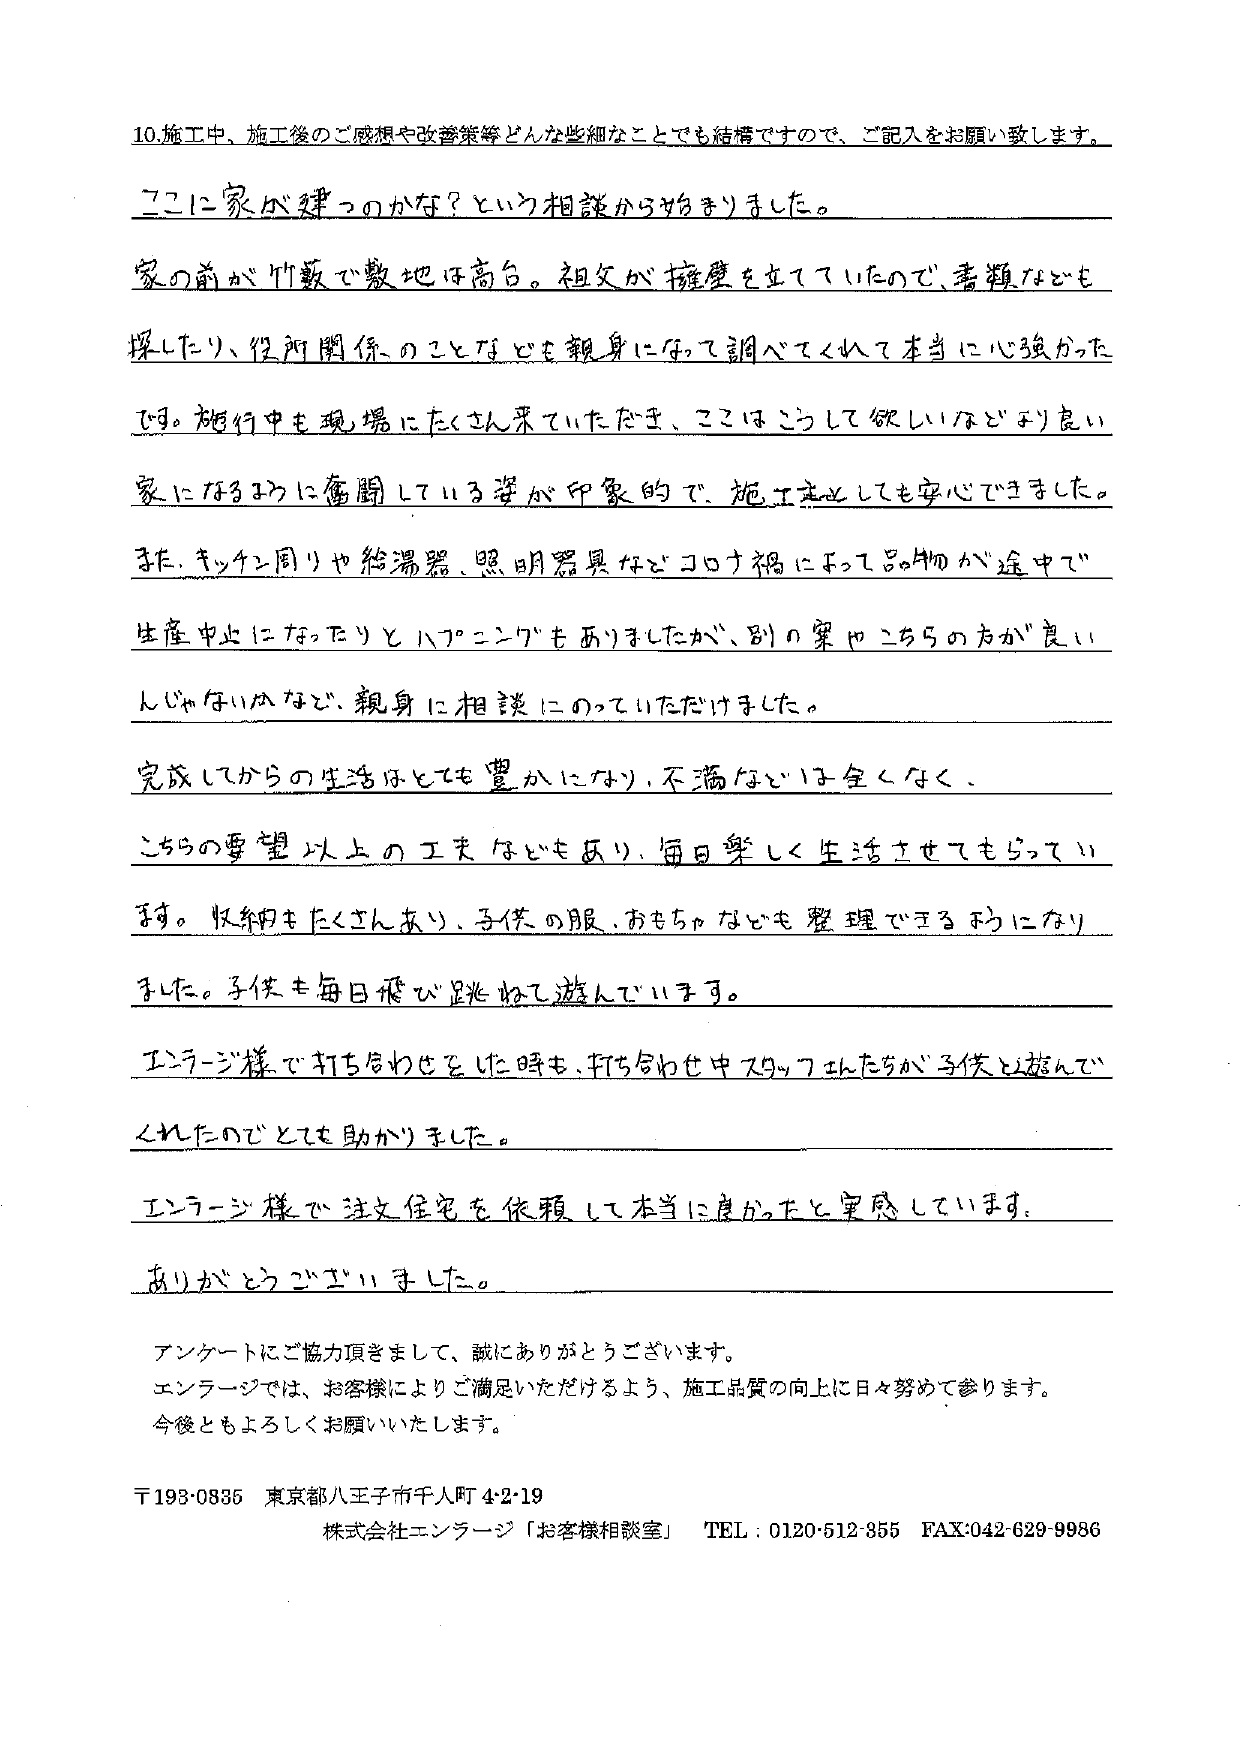 10.施工中、施工後のご感想や改善策等どんな些細なことでも結構ですので、ご記入をお願い致します。
ここに家が建つのかな?という相談から始まりました。
家の前が竹藪で敷地は高台。祖父が擁壁を立てていたので、書類なども
探したり、役所関係のことなども親身になって調べてくれて本当に心強かった
です。施行中も現場にたくさん来ていただき、ここはこうして欲しいなどより良い
家になるように奮闘している姿が印象的で、施工主としても安心できました。
また、キッチン周りや給湯器、照明器具などコロナ禍によって品物が途中で
生産中止になったりとハプニングもありましたが、別の案やこちらの方が良い
んじゃないかなど、親身に相談にのっていただけました。
完成してからの生活はとても豊かになり、不満などは全くなく、
こちらの要望以上の工夫などもあり、毎日楽しく生活させてもらってい
ます。収納もたくさんあり、子供の服、おもちゃなども整理できるようになり
ました。子供も毎日飛び跳ねて遊んでいます。
エンラージ様で打ち合わせをした時も、打ち合わせ中スタッフさんたちが子供と遊んで
くれたのでとても助かりました。
エンラージ様で注文住宅を依頼して本当に良かったと実感しています。
ありがとうございました。
アンケートにご協力頂きまして、誠にありがとうございます。
エンラージでは、お客様によりご満足いただけるよう、施工品質の向上に日々努めて参ります。
今後ともよろしくお願いいたします。
〒193-0835 東京都八王子市千人町 4-2-19
株式会社エンラージ「お客様相談室」 TEL:0120-512-355 FAX:042-629-9986